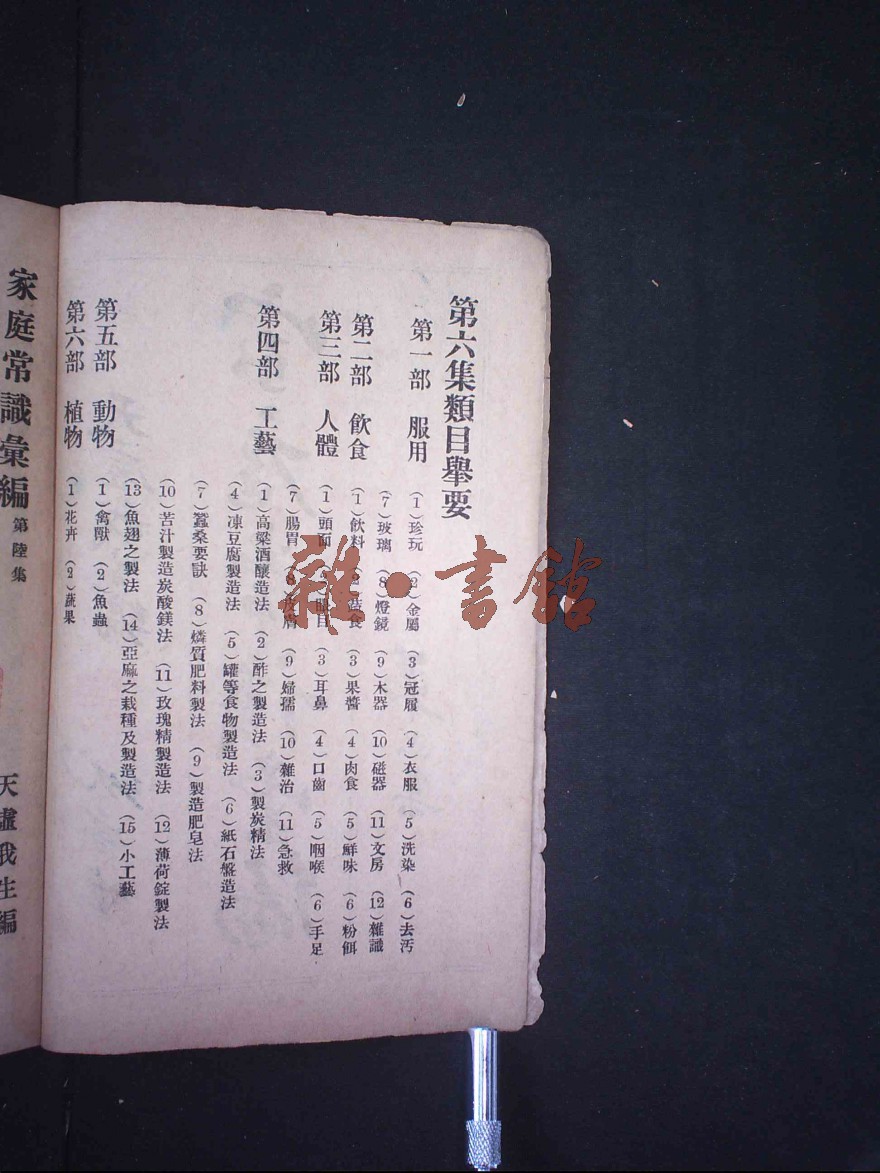 第六集類目舉要
第一部　服用　（1）珍玩　（2）金屬　（3）冠履　（4）衣服　（5）洗染　（6）去汚
（7）玻璃　（8）燈鏡　（9）木器　（10）磁器　（11）文房　（12）雜識
第二部　飲食　（1）飲料　蔬食　（3）果醬　（4）肉食　（5）鮮味　（6）粉餌
第三部　人體　（1）頭面　眼目　（3）耳鼻　（4）口齒　（5）咽喉　（6）手足
（7）腸胃　皮膚　（9）婦孺　（10）雜治　（11）急救
第四部　工藝　（1）高粱酒釀造法　（2）酢之製造法　（3）製炭精法
（4）凍豆腐製造法　（5）罐等食物製造法　（6）紙石盤造法
（7）蠶桑要訣　（8）燐質肥料製法　（9）製造肥皂法
（10）苦汁製造炭酸鎂法　（11）玫瑰精製造法　（12）薄荷錠製法
（13）魚翅之製法　（14）亞麻之栽種及製造法　（15）小工藝
第五部　動物　（1）禽獸　（2）魚蟲
第六部　植物　（1）花卉　（2）蔬果
家庭常識彙編　第陸集　天虛我生編
雜·書館